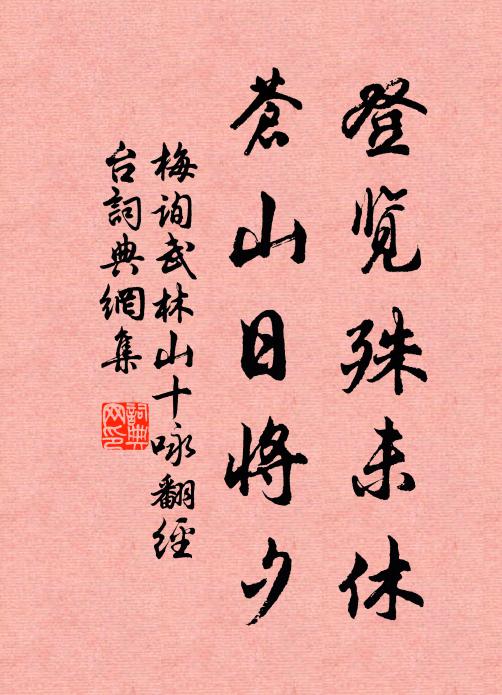 登览殊未休
蒼山日将夕
梅询武林山十咏翻經
台詞典網集
詞典
网印